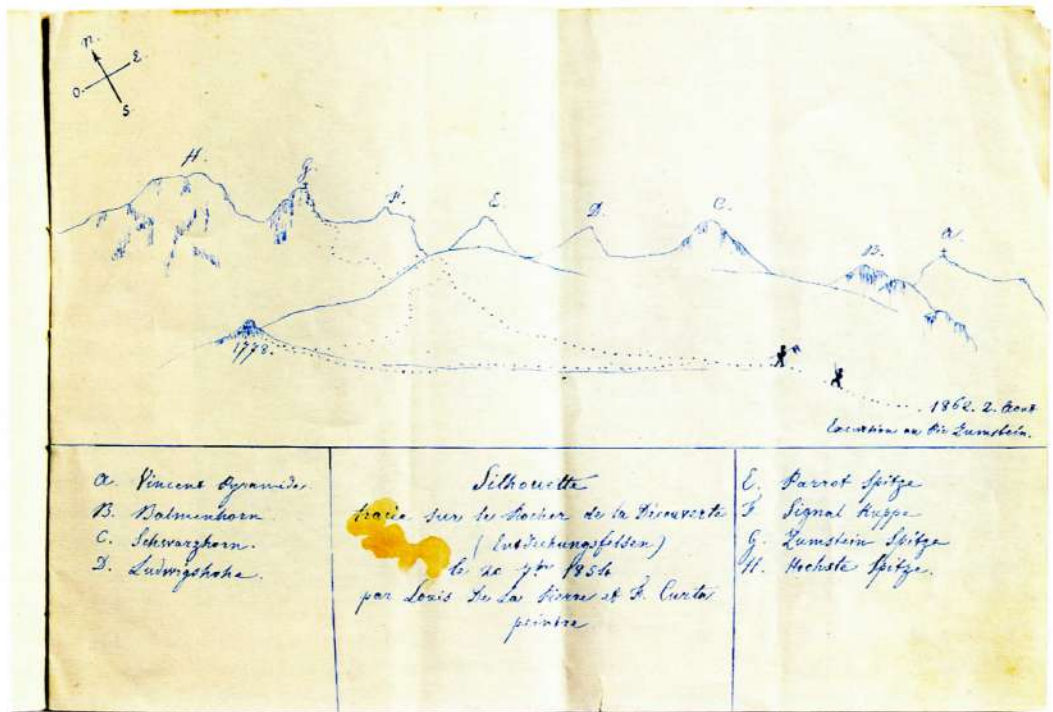 n.
E.
O.
S
H.
G.
F.
E.
D.
C.
B.
A.
1778.
1862. 2. Aout
Excursion au Pic Zumstein.
A. Vincent Pyramide.
B. Balmenhorn
C. Schwarzhorn.
D. Ludwigshohe.
Silhouette
tracée sur le Rocher de la Découverte
(Entdechungsfelsen)
le 20 7bre
par Louis De La Pierre et F. Curta
peintre
E. Parrot Spitze
F Signal Kuppe
G. Zumstein Spitze
H. Hochste Spitze.